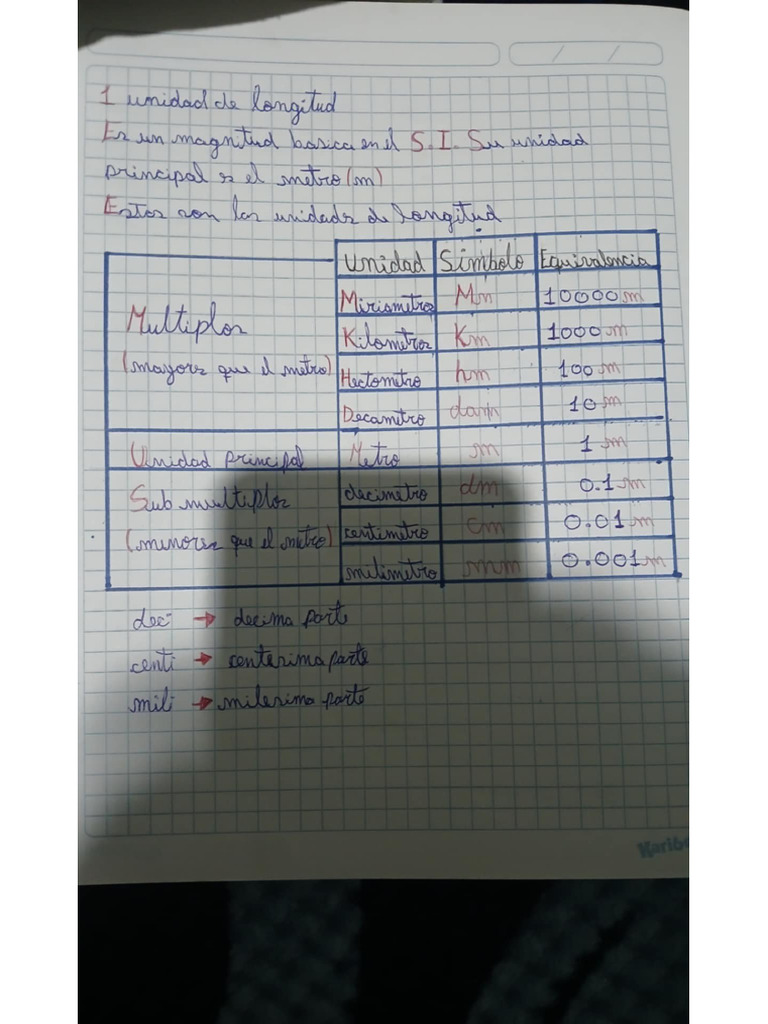 1 unidad de longitud
Es un magnitud basica en el S.I. Su unidad
principal es el metro (m)
Estos son las unidads de longitud
Unidad Símbolo Equivalencia
Multiplos
(mayores que el metro)
Miriametros Mm 10000 m
Kilometros Km 1000 m
Hectometro hm 100 m
Decametro dam 10 m
Unidad principal Metro m 1 m
Sub multiplos
(menores que el metro)
decimetro dm 0.1 m
centimetro cm 0.01 m
milimetro mm 0.001 m
deci → decima parte
centi → centesima parte
mili → milesima parte